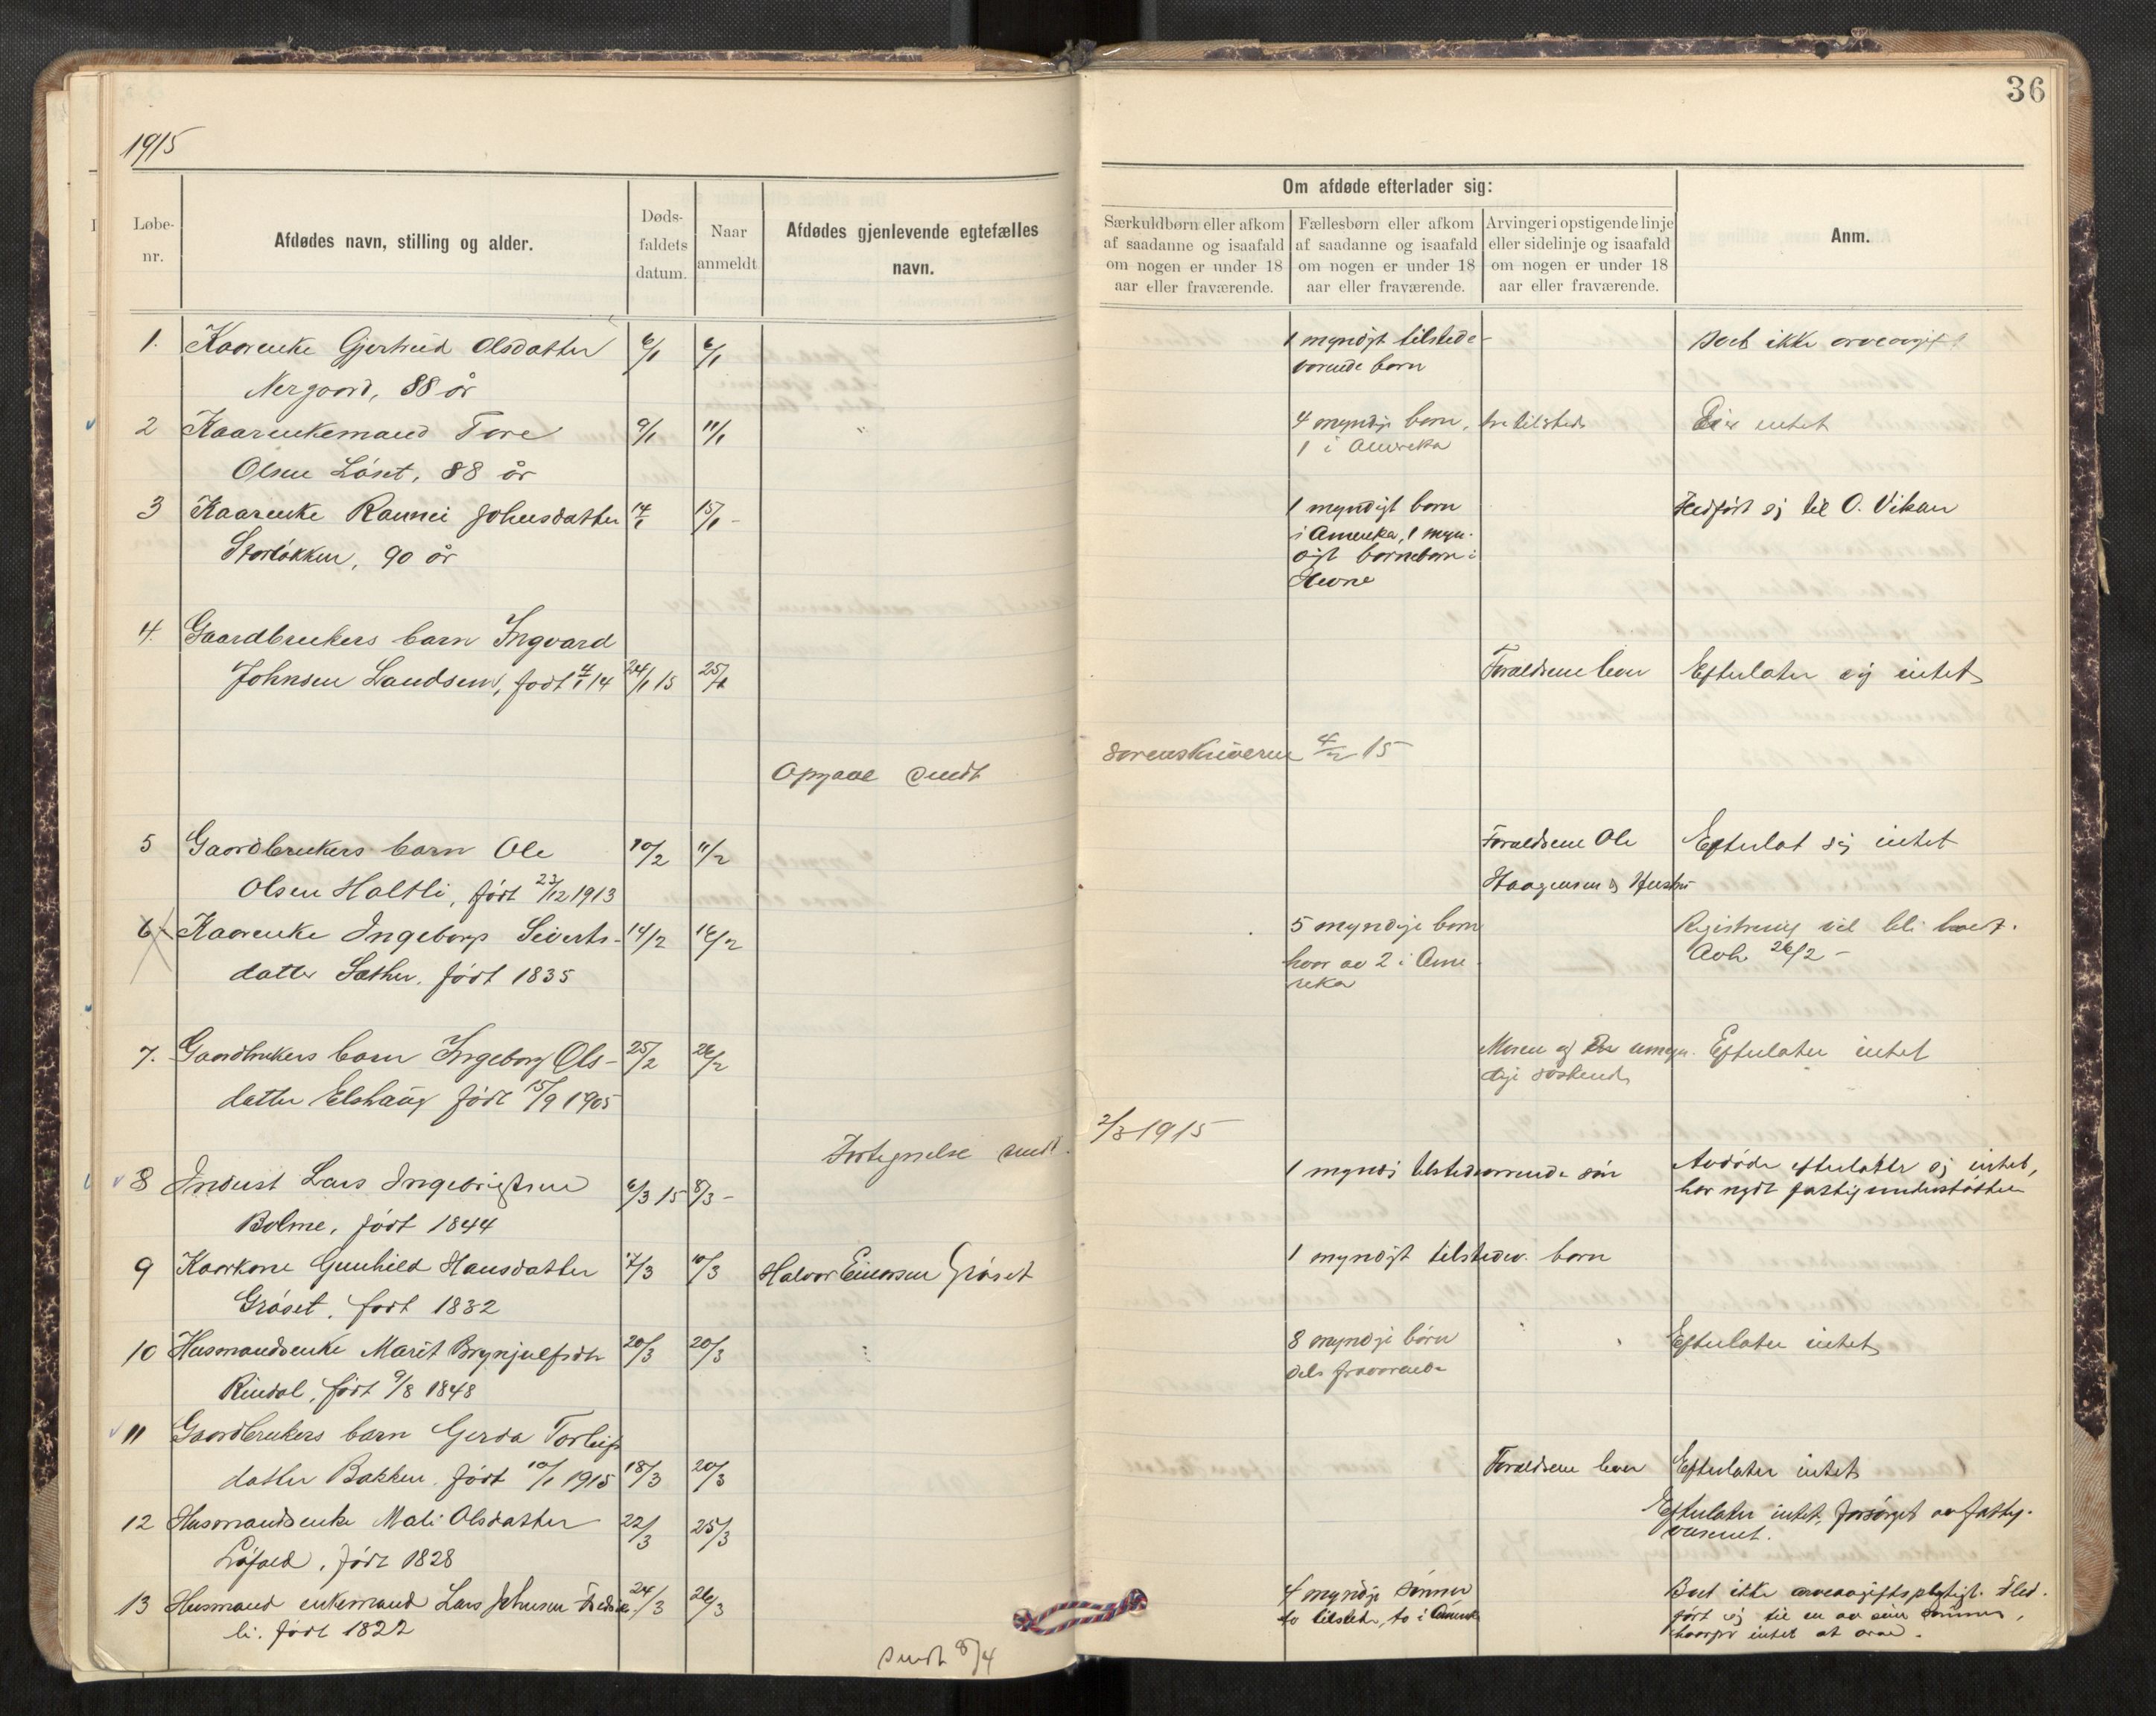 36
1915
Løbe-
nr.
Afdødes navn, stilling og alder.
Døds-
faldets
datum.
Naar
anmeldt
Afdødes gjenlevende egtefælles
navn.
Om afdøde efterlader sig:
Særkuldbørn eller afkom
af saadanne og isaafald
om nogen er under 18
aar eller fraværende.
Fællesbørn eller afkom
af saadanne og isaafald
om nogen er under 18
aar eller fraværende.
Arvinger i opstigende linje
eller sidelinje og isaafald
om nogen er under 18
aar eller fraværende.
Anm.
1. Kaarenke Gjertrud Olsdatter 6/1 6/1 1 myndigt tilstede- Boet ikke arveavgift
Nergaard, 88 år værende barn
2 Kaarenkemand Tore 9/1 11/1 4 myndige barn, tre tilstede Eier intet
Olsen Løset, 88 år 1 i Amerika
3 Kaarenke Raunei Johnsdatter 14/1 15/1 - 1 myndigt barn Hedført sig til O. Vikan
Storløkken, 90 år i Amerika, 1 myn-
digt barnebarn i
Hevne
4. Gaardbrukers barn Ingvard
Johnsen Landsem, født 4/1 14 24/1 15 25/1 Forældrene lever Efterlater sig intet
Opgave sendt sorenskriveren 4/2 15
5 Gaardbrukers barn Ole 10/2 11/2 Forældrene Ole Efterlot sig intet
Olsen Holtli, født 23/12 1913 Haagensen og Hustru
6 Kaarenke Ingeborg Siverts- 14/2 16/2 5 myndige barn Registrering vil bli
datter Sæther, født 1835 hvor av 2 i Ame- Avh. 26/2 -
rika
7. Gaardbrukers barn Ingeborg Ols- 25/2 26/2 Moren og umyn- Efterlater intet
datter Elshaug født 15/9 1905 dige søskende
Fortegnelse sendt. 2/3 1915
8 Inderst Lars Ingebrigtsen 6/3 15 8/3 - 1 myndig tilstedeværende søn Avdøde efterlater sig intet,
Bolme, født 1844 har nydt fattigunderstøttelse
9 Kaarkone Gunhild Hansdatter 7/3 10/3 Halvor Einarsen Grøset 1 myndigt tilstedev. barn
Grøset, født 1832
10 Husmandsenke Marit Brynjulfsdtr 20/3 20/3 8 myndige børn Efterlater intet
Rindal, født 9/8 1848 dels fraværende
11 Gaardbrukers barn Gerda Torleifs
datter Bakken, født 10/1 1915 18/3 20/3 Forældrene lever Efterlater intet
12 Husmandsenke Mali Olsdatter 22/3 25/3 Efterlater intet, forsørget av fattig-
Løfald, født 1828 væsenet.
13 Husmand enkemand Lars Johnsen 24/3 26/3 4 myndige sønner Boet ikke arveavgiftspligtigt. Fled-
li. født 1822 to tilstede, to i Amerika ført sig til en av sine sønner,
hvorfor intet at arve.
sendt 8/4